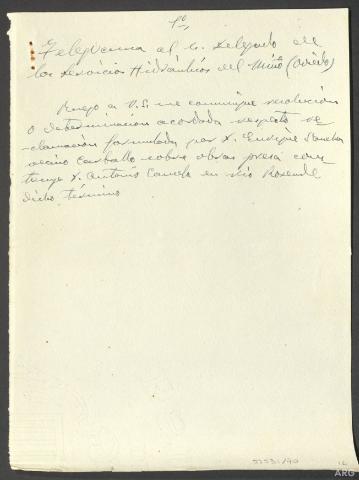 1º
Telegrama al Sr. Delegado de
los Servicios Hidráulicos del Miño (Oviedo)
Ruego a V.S. me comunique resolución
o determinación acordada respecto re-
clamación formulada por D. Enrique Sánchez
vecino Carballo sobre obras presa cons-
truye D. Antonio Canedo en río Rosende
dicho término
53531/40
12
ARG